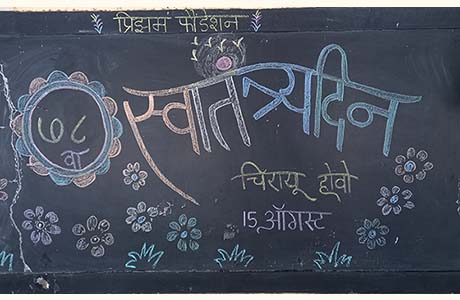 प्रिझमं फौंडेशन
७८
वा
स्वातंत्र्यदिन
चिरायू होवो
15 ऑगस्ट